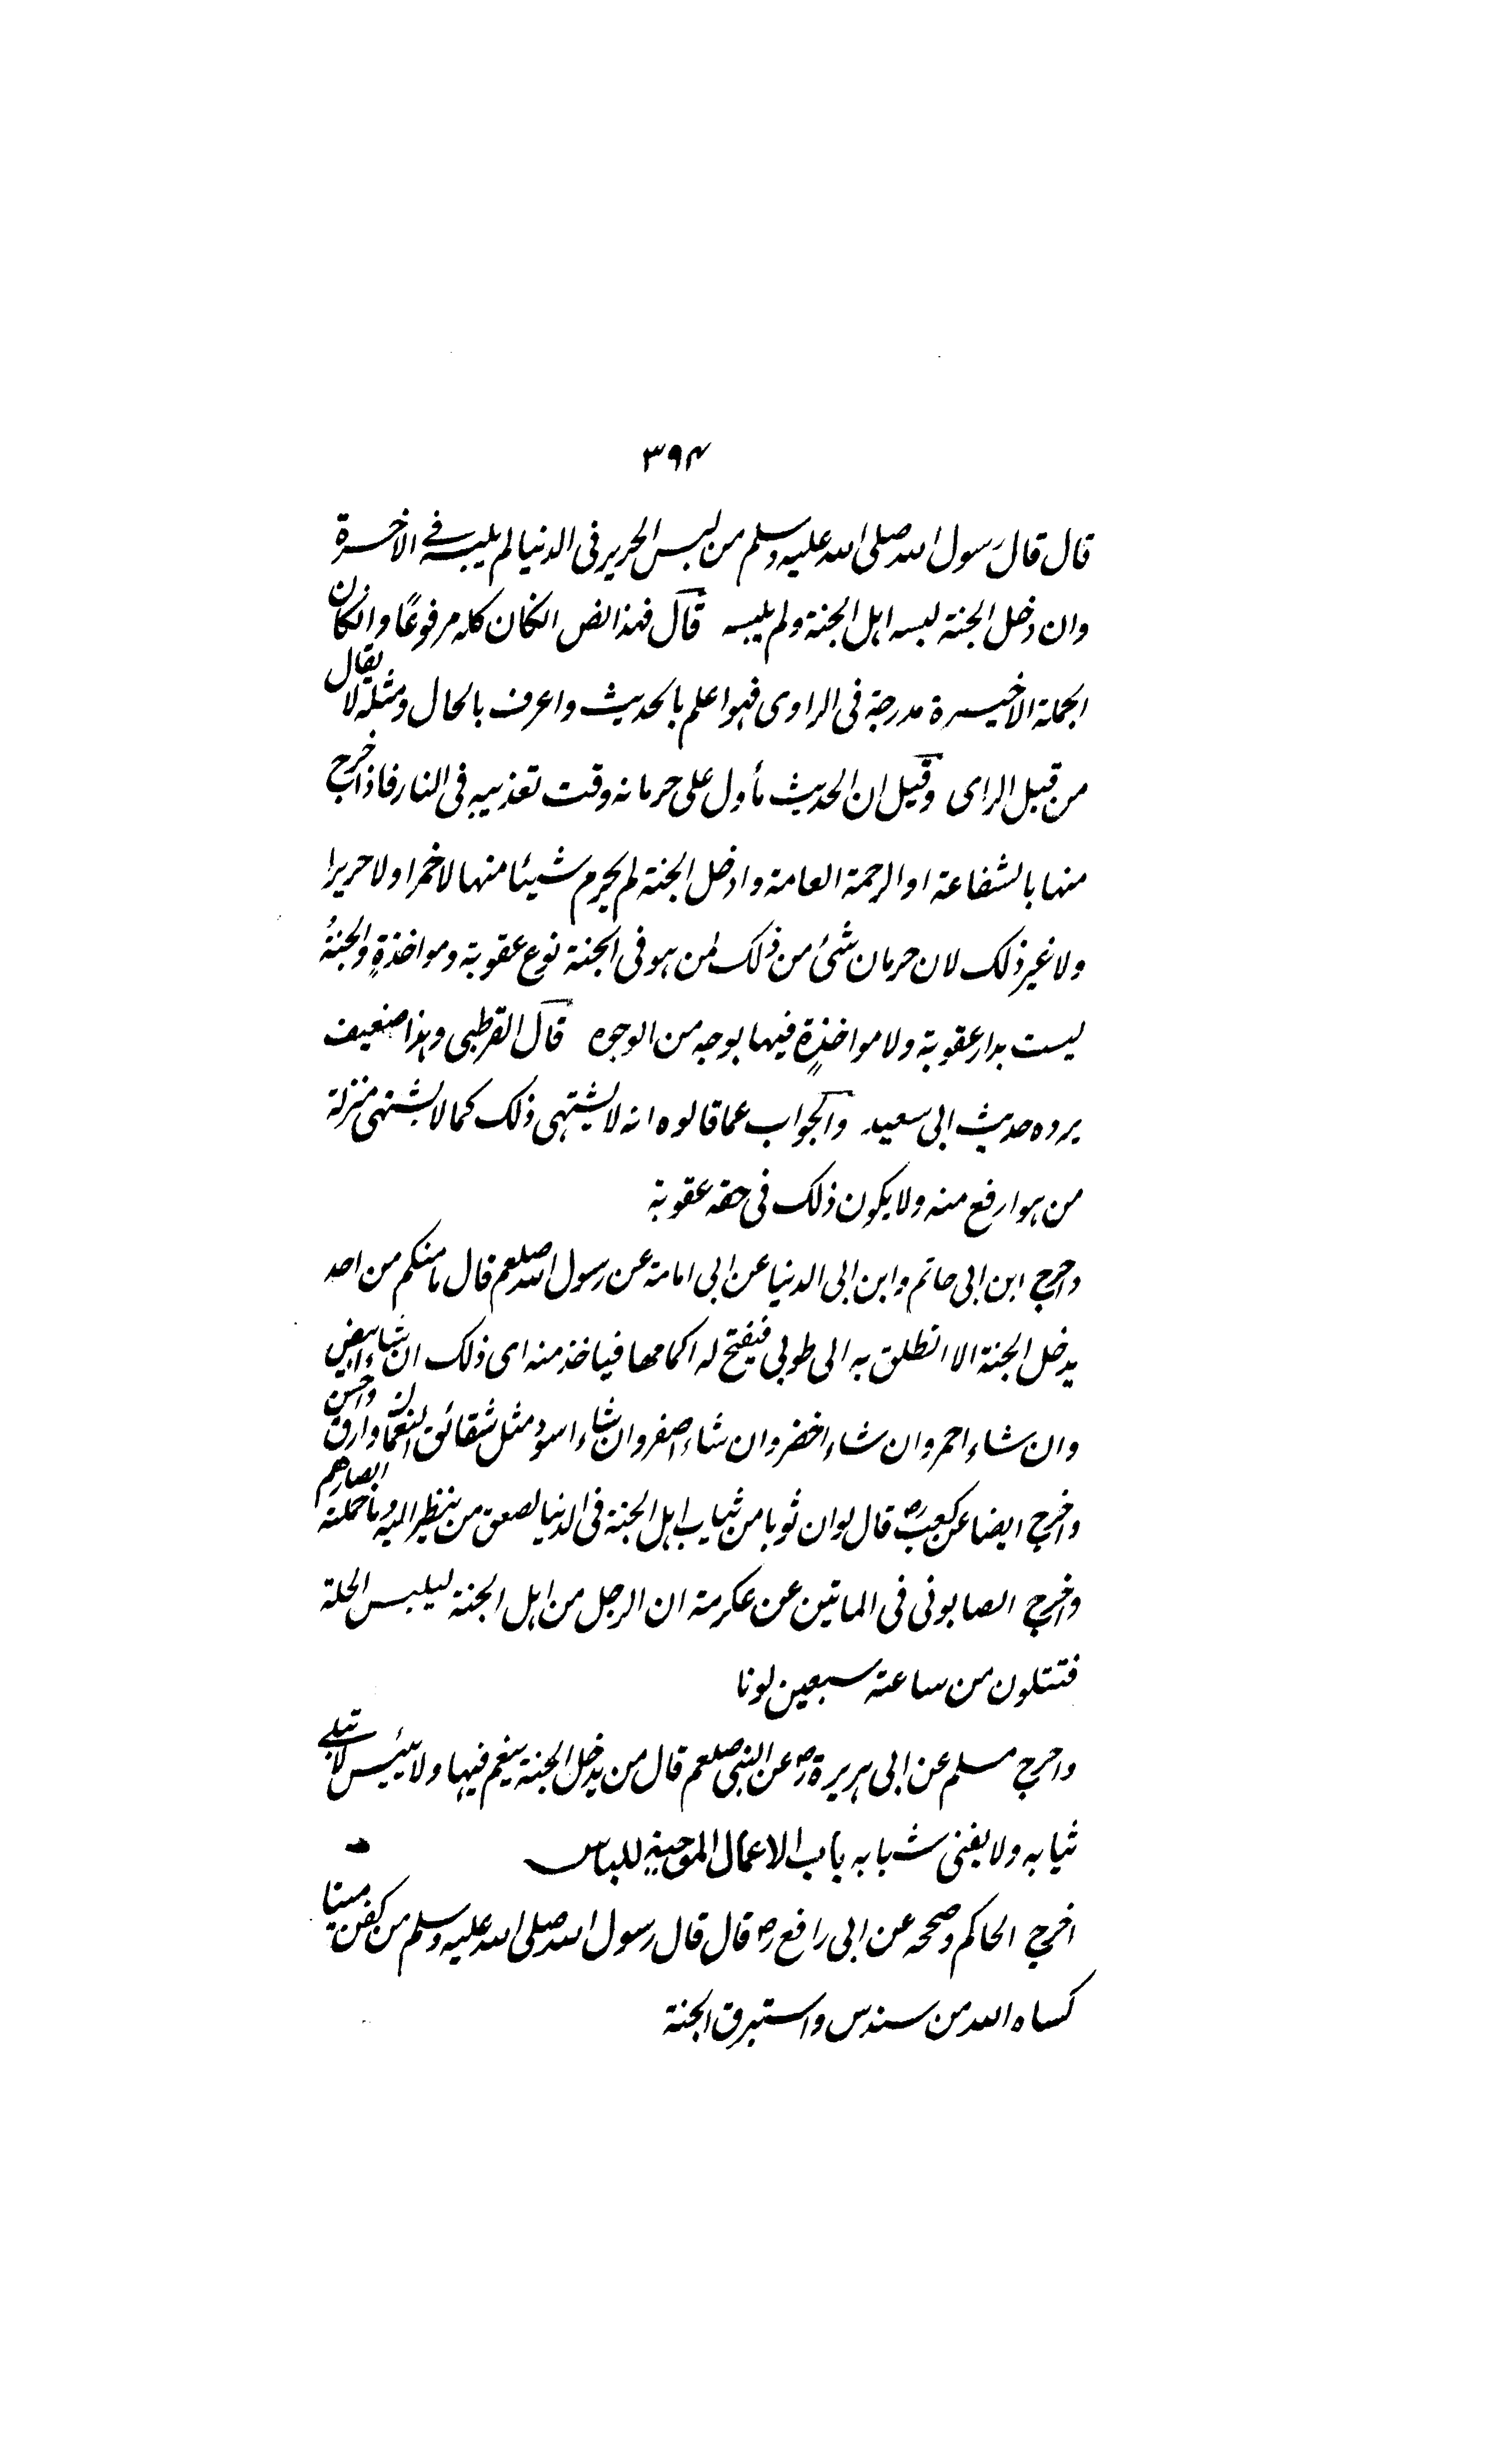 ٣٩٤
قال قال رسول الله صلى الله عليه وسلم من لبس الحرير في الدنيا لم يلبسه في الاخرة
وان دخل الجنة لبسه اهل الجنة ولم يلبسه قال فهذا نص ان كان كله مرفوعًا وان كان
الجملة الاخيرة مدرجة في الراوى فهو اعلم بالحديث واعرف بالحال ومثله لا يقال
من قبل الراى وقيل ان الحديث مأول على حرمانه وقت تعذيبه في النار فاذا خرج
منها بالشفاعة او الرحمة العامة وادخل الجنة لم يحرم شيئا منها لا خمرا ولا حريرا
ولا غير ذلك لان حرمان شئ من ذلك لمن هو في الجنة نوع عقوبة ومواخذةٍ والجنةُ
ليست بدار عقوبة ولا مواخذةٍ فيها بوجه من الوجوه قال القرطبى وهذا ضعيف
يرده حديث ابى سعيد والجواب عما قالوه انه لا يشتهى ذلك كما لا يشتهى منزلة
من هو ارفع منه ولا يكون ذلك في حقه عقوبة
واخرج ابن ابى حاتم وابن ابى الدنيا عن ابى امامة عن رسول الله صلعم قال ما منكم من احد
يدخل الجنة الا انطلق به الى طوبى فيفتح له اكمامها فياخذ منه اى ذلك ان شاء ابيض
وان شاء احمر وان شاء اخضر وان شاء اصفر وان شاء اسود مثل شقائق النعمان وارق واحسن
واخرج ايضا عن كعب رض قال لو ان ثوبا من ثياب اهل الجنة في الدنيا لصعق من ينظر اليه وما حملته ابصارهم
واخرج الصابونى في الماتين عن عكرمة ان الرجل من اهل الجنة ليلبس الحلة
فتتلون من ساعته سبعين لونا
واخرج مسلم عن ابى هريرة رض عن النبى صلعم قال من يدخل الجنة ينعم فيها ولا يبئس لا تبلى
ثيابه ولا يفنى شبابه باب الاعمال الموجبة للباس
اخرج الحاكم وصححه عن ابى رافع رض قال قال رسول الله صلى الله عليه وسلم من كفن ميتا
كساه الله من سندس واستبرق الجنة